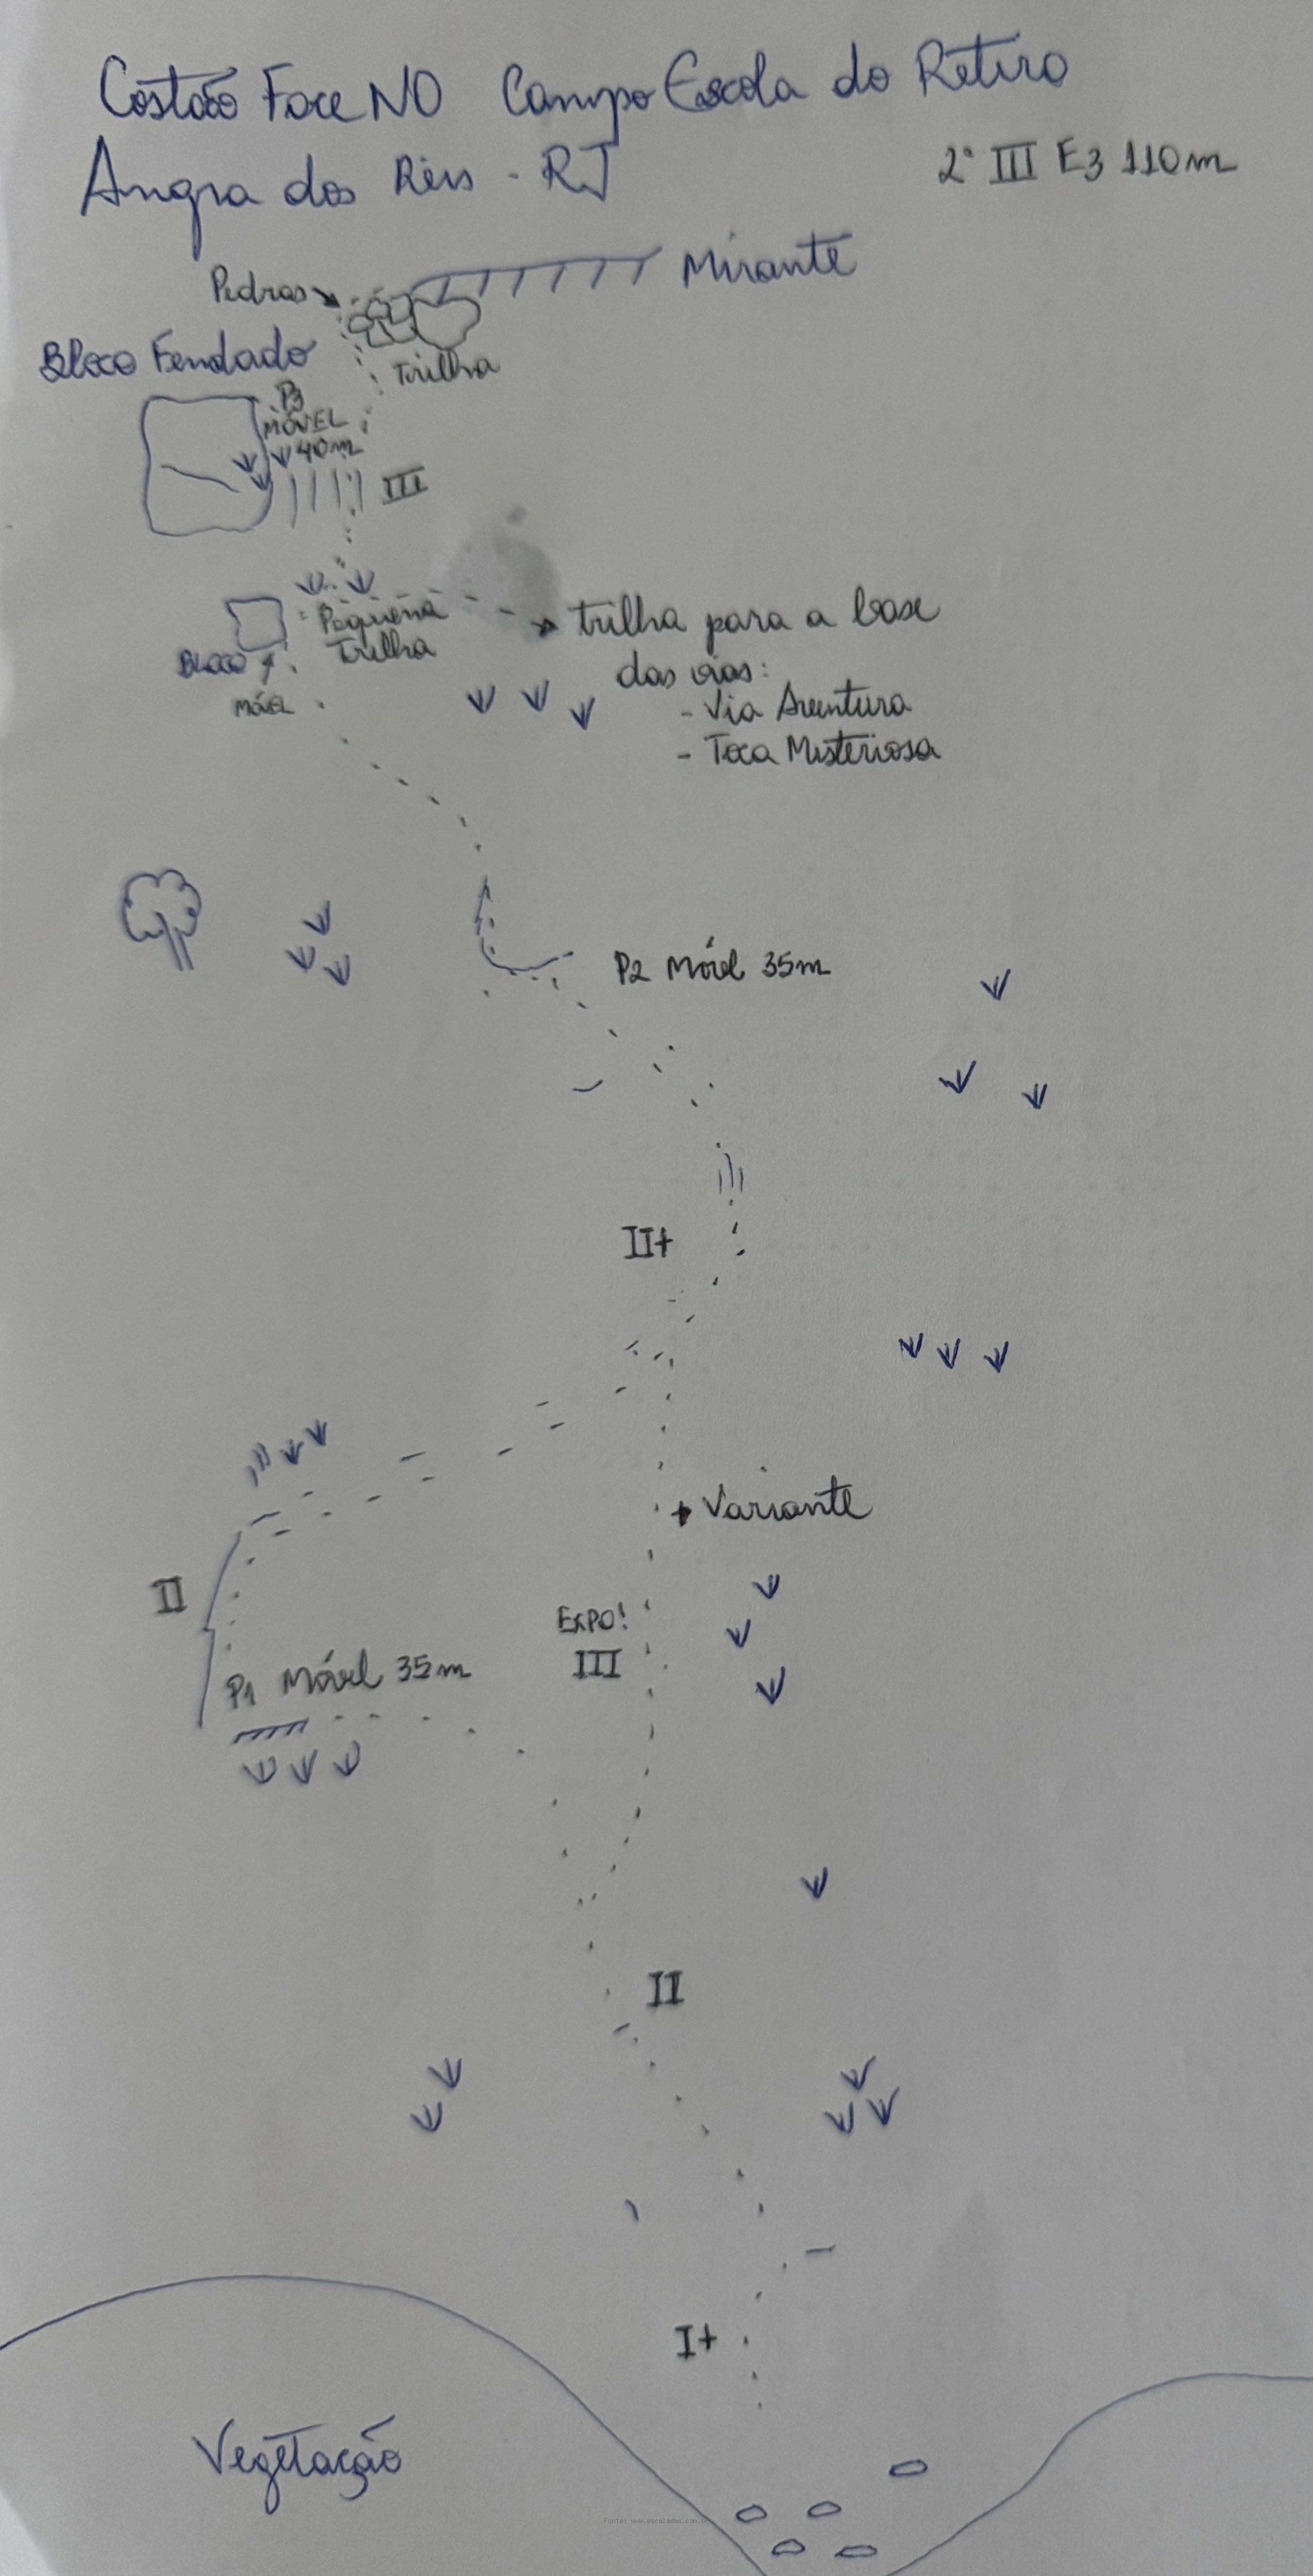 Costão Face NO Campo Escola do Retiro
Angra dos Reis - RJ
2° III E3 110m
Mirante
Pedras
Trilha
Bloco Fendado
P3
MÓVEL
40m
III
Pequena
Trilha
trilha para a base
das vias:
- Via Aventura
- Toca Misteriosa
BLOCO
MÓVEL
P2 Móvel 35m
II+
Variante
II
EXPO!
III
P1 Móvel 35m
II
I+
Vegetação
Fonte: www.escaladas.com.br